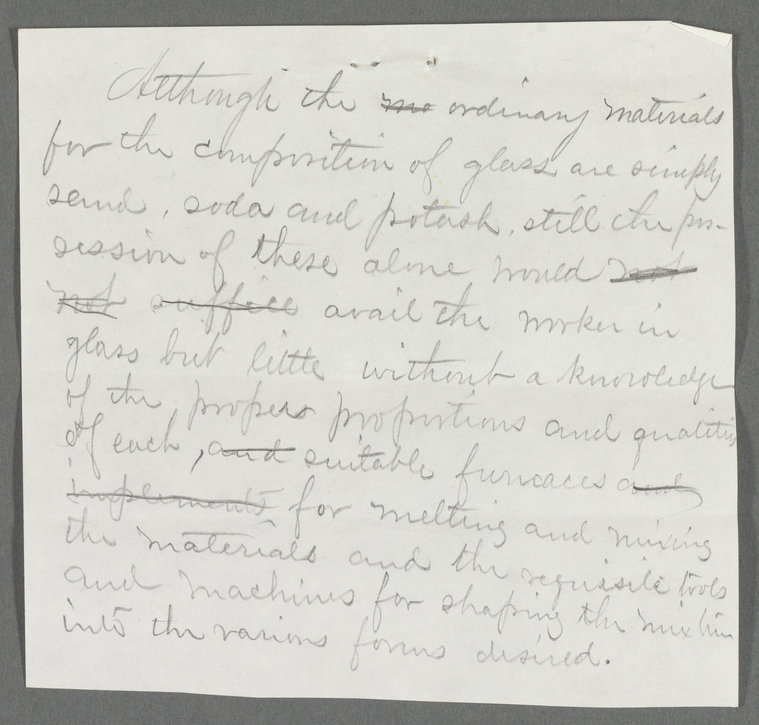 Although the mo ordinary materials
for the composition of glass are simply
sand, soda and potash, still the pos-
session of these alone would not
not suffice avail the worker in
glass but little without a knowledge
of the proper proportions and qualities
of each, and suitable furnaces and
implements for melting and mixing
the materials and the requisite tools
and machines for shaping the mixture
into the various forms desired.